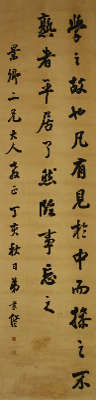 學之故也凡有見於中而操之不
熟者平居了然臨事忘之
景卿二兄大人教正 丁亥秋日弟